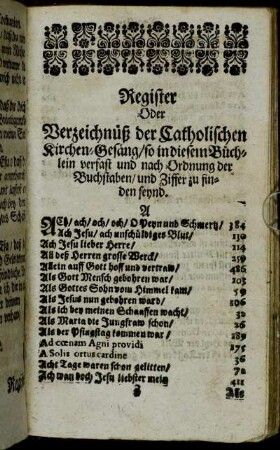 Register
Oder
Verzeichnüß der Catholischen
Kirchen-Gesäng/ so in diesem Büch-
lein verfast und nach Ordnung der
Buchstaben/ und Ziffer zu fin-
den seynd.
A
ACh/ ach/ och/ och/ O Peyn und Schmertz/ 384
Ach Jesu/ ach unschüldiges Blut/ 130
Ach Jesu lieber Herre/ 114
All deß Herren grosse Werck/ 259
Allein auff Gott hoff und vertraw/ 486
Als Gott Mensch gebohren war/ 103
Als Gottes Sohn vom Himmel kam/ 59
Als Jesus nun gebohren ward/ 106
Als ich bey meinen Schaaffen wacht/ 32
Als Maria die Jungfraw schon/ 26
Als der Pfingstag kommen war/ 189
Ad cœnam Agni providi 175
A Solis ortus cardine 36
Acht Tage waren schon gelitten/ 72
Ach wan doch Jesu liebster mein 411
Als